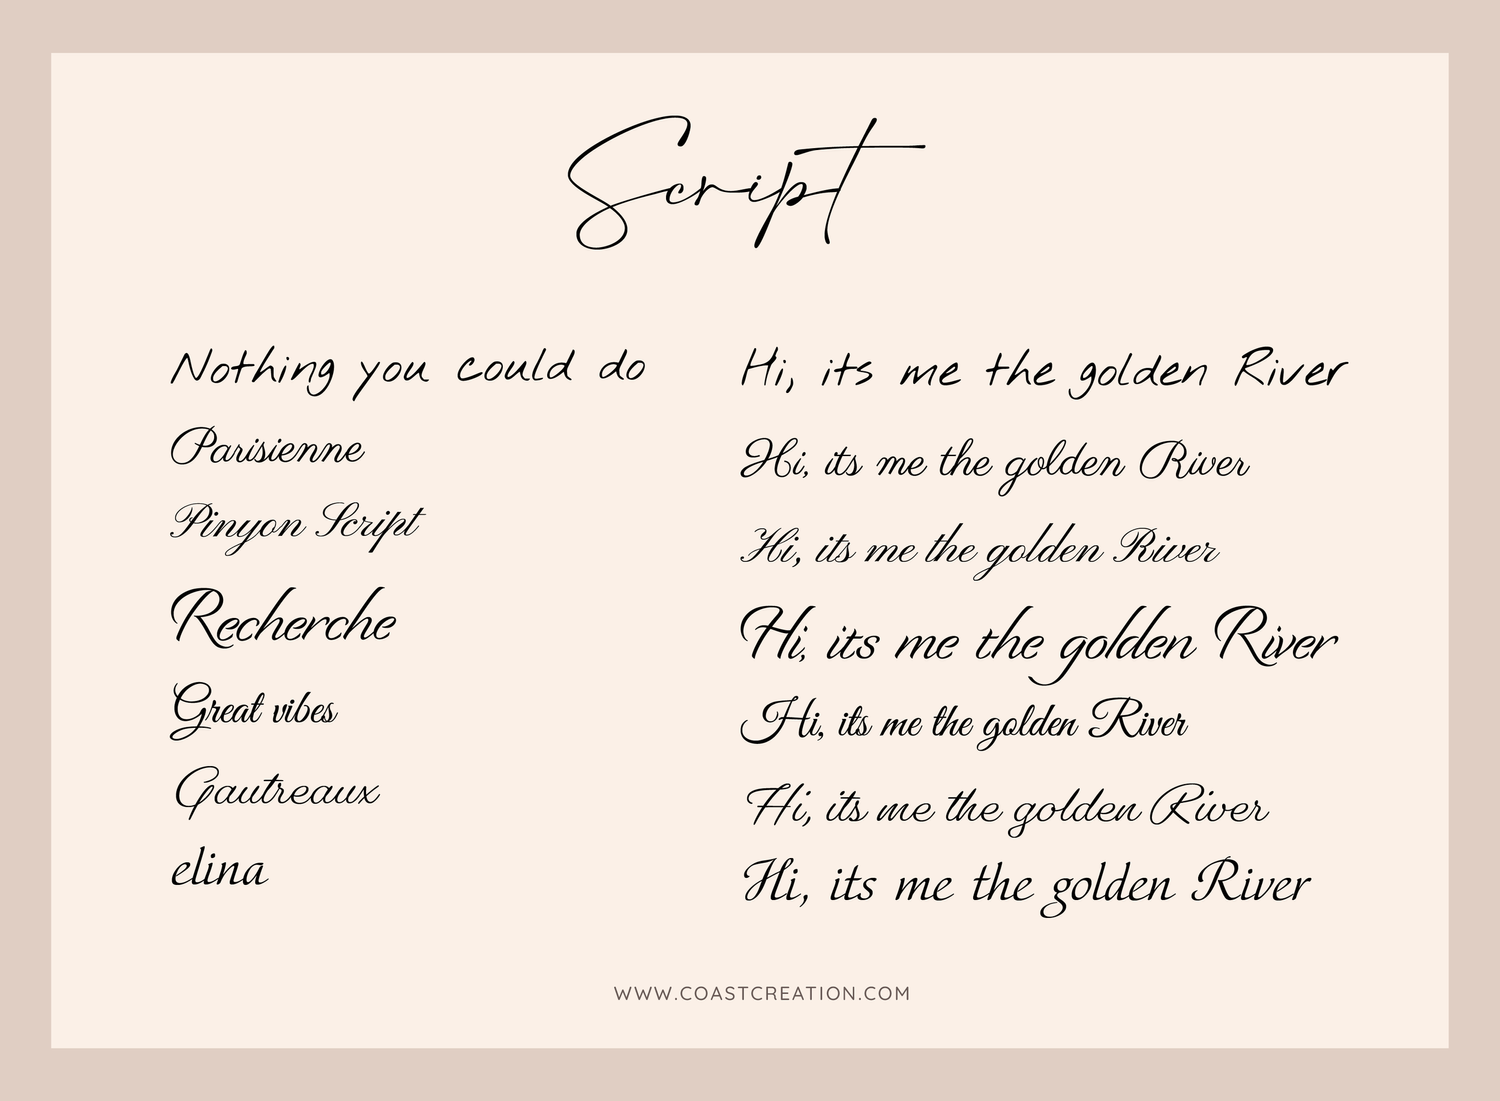 Script
Nothing you could do
Hi, its me the golden River
Parisienne
Hi, its me the golden River
Pinyon Script
Hi, its me the golden River
Recherche
Hi, its me the golden River
Great vibes
Hi, its me the golden River
Gautreaux
Hi, its me the golden River
elina
Hi, its me the golden River
WWW.COASTCREATION.COM